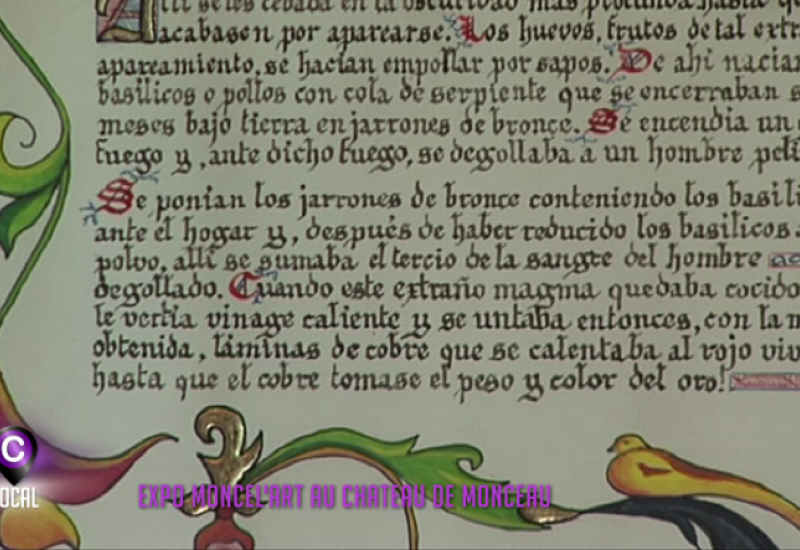 Allí se les cebaba en la oscuridad más profunda hasta que
acabasen por aparearse. Los huevos, frutos de tal extra
apareamiento, se hacían empollar por sapos. De ahí nacían
basilicos o pollos con cola de serpiente que se encerraban s
meses bajo tierra en jarrones de bronce. Se encendía un
fuego y, ante dicho fuego, se degollaba a un hombre peli
Se ponían los jarrones de bronce conteniendo los basili
ante el hogar y, después de haber reducido los basilicos a
polvo, allí se sumaba el tercio de la sangre del hombre
degollado. Cuando este extraño magma quedaba cocido
le vertía vinage caliente y se untaba entonces, con la m
obtenida, láminas de cobre que se calentaba al rojo viv
hasta que el cobre tomase el peso y color del oro!
C
OCAL
EXPO MONCEL'ART AU CHATEAU DE MONCEAU